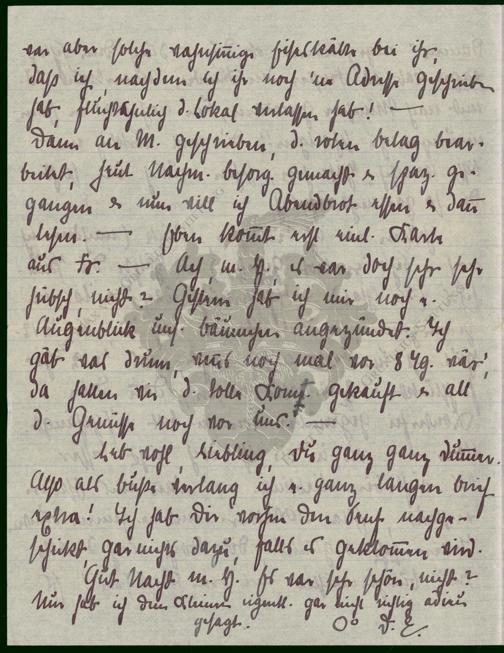 war aber solche wahnsinnige Eiseskälte bei ihr,
daß ich, nachdem ich ihr noch 'ne Adresse geschrieben
hab, fluchtähnlich d. Lokal verlassen hab! —
Dann an M. geschrieben, d. roten belag bear-
beitet, heut Nachm. besorg. gemacht & spaz. ge-
gangen & nun will ich Abendbrot essen & dann
lesen — Eben kommt erst eine Karte
aus Fr. — Ach, m. H., es war doch sehr sehr
hübsch, nicht? Gestern hab ich mir noch e.
Augenblick uns. bäumchen angezündet. Ich
gäb was drum, wenns noch mal vor 8 Tg. wär',
da hatten wir d. tolle gekauft & all
d. Genüsse noch vor uns. —
Leb wohl, Liebling, Du ganz ganz dummer.
Also als buße verlang ich e. ganz langen brief
extra! Ich hab Dir vorhin den nachge-
schickt gar nichts dazu, falls es geklommen wird.
Gut Nacht m. H. Es war sehr schön, nicht?
Nur hab ich dem Kleinen eigentl. gar nicht richtig adieu
gesagt. D. E.